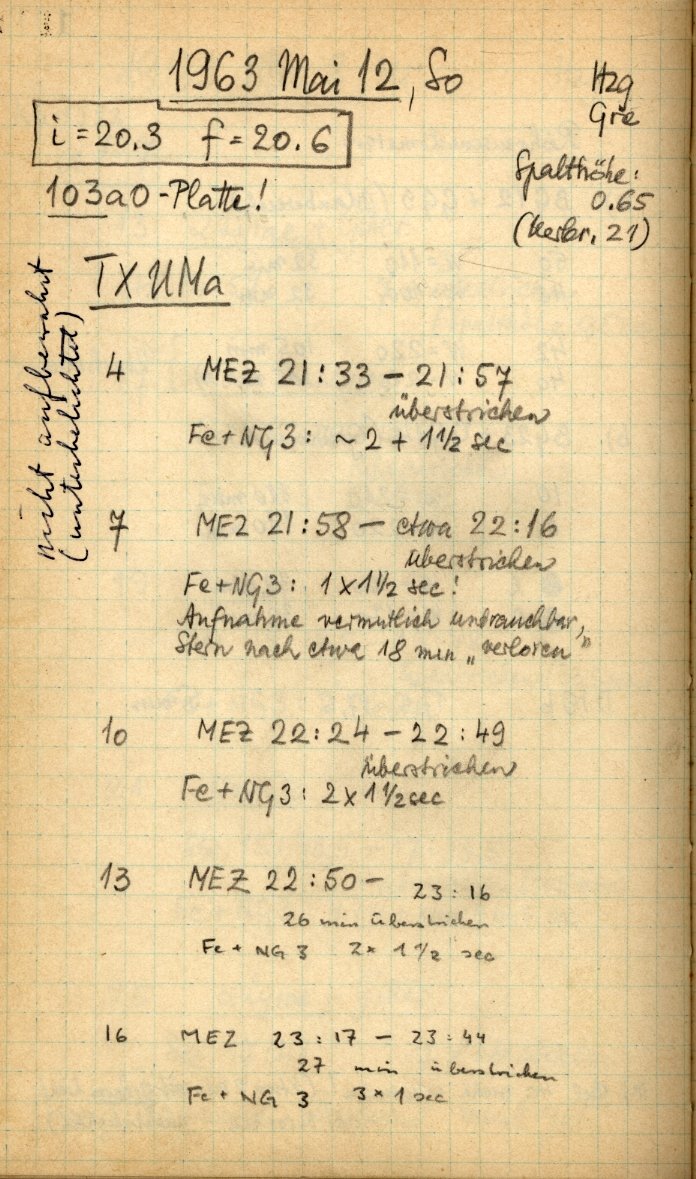 1963 Mai 12, So
Hzg
Gre
i=20.3 f=20.6
103a0-Platte!
Spalthöhe:
0.65
21)
TX UMa
nicht aufbewahrt
(unterbelichtet)
4 MEZ 21:33 – 21:57
überstrichen
Fe+NG3: ~2 + 1 1/2 sec
7 MEZ 21:58 – etwa 22:16
überstrichen
Fe+NG3: 1 x 1 1/2 sec!
Aufnahme vermutlich unbrauchbar,
Stern nach etwa 18 min „verloren"
10 MEZ 22:24 – 22:49
überstrichen
Fe+NG3: 2 x 1 1/2 sec
13 MEZ 22:50 – 23:16
26 min überstrichen
Fe + NG 3 2x 1 1/2 sec
16 MEZ 23:17 – 23:44
27 min überstrichen
Fe + NG 3 3 x 1 sec